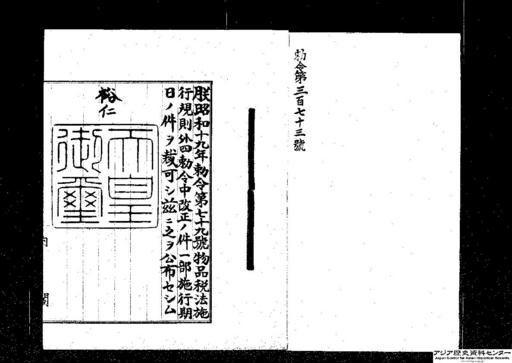 勅令第三百七十三號
朕昭和十九年勅令第七十九號物品税法施
行規則外四勅令中改正ノ件一部施行期
日ノ件ヲ裁可シ茲ニ之ヲ公布セシム
裕仁
天皇
御璽
内閣
アジア歴史資料センター
Japan Center for Asian Historical Records